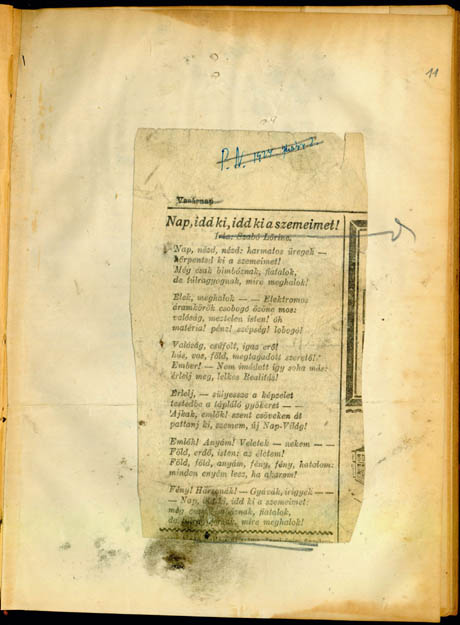 11
P. N. 1924
Vasárnap
Nap, idd ki, idd ki a szemeimet!
Írta: Szabó Lőrinc.
Nap, nézd, nézd: harmatos üregek —
ki a szemeimet!
Még csak bimbóznak, fiatalok,
de túlragyognak, mire meghalok!
Élek, meghalok — — Elektromos
áramkörök csobogó ózóne mos:
valóság, meztelen isten! óh
matéria! pénz! szépség! lobogó!
Valóság, csúfolt, igaz erő!
hús, vas, föld, megtagadott szerető!
Ember! — Nem imádott így soha más:
érlelj meg, lelkes Realitás!
Érlelj, — sülyessze a képzelet
testedbe a tápláló gyökeret — —
Ajkak, emlők! szent csöveken át
pattanj ki, szemem, új Nap-Világ!
Emlők! Anyám! Veletek — nekem — —
Föld, erdő, isten: az életem!
Föld, föld, anyám, fény, fény, hatalom:
minden enyém lesz, ha akarom!
Fény! — Gyávák, irigyek — —
— Nap, idd ki, idd ki a szemeimet:
még csak bimbóznak, fiatalok,
de mire meghalok!